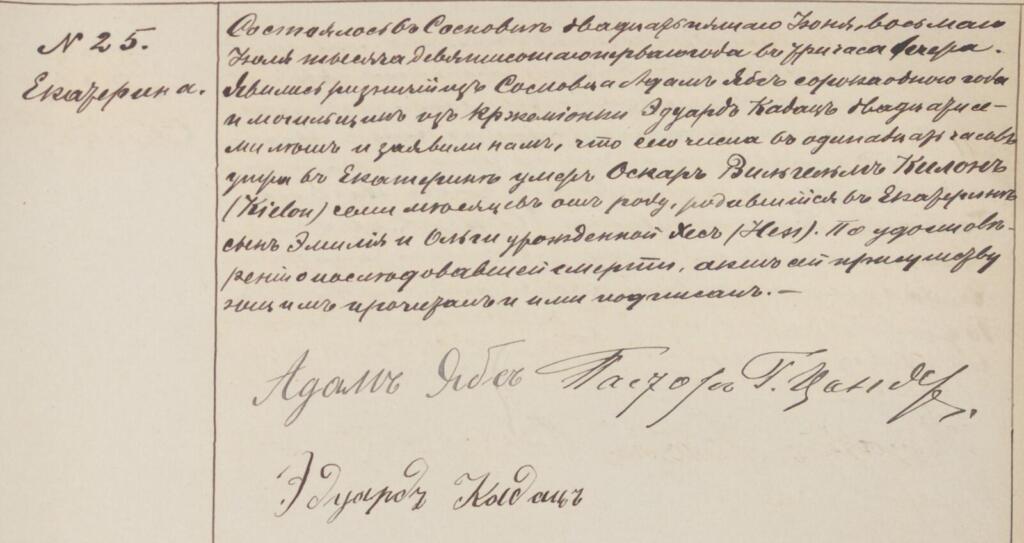 N 25.
Екатерина.
Состоялось въ Сосновицѣ двадцать пятаго Іюня, восьмаго
Іюля тысяча девятисотаго перваго года въ три часа вечера.
Явились ризничій изъ Сосновца Адамъ Ябсъ сорока одного года
и могильщикъ изъ Кржеміонки Эдуардъ Кадацъ двадцати се-
ми лѣтъ и заявили намъ, что сего числа въ одинадцать часовъ
утра въ Екатеринѣ умеръ Оскаръ Вильгельмъ Килонъ
(Kielon) семи мѣсяцевъ отъ роду, родившійся въ Екатеринѣ
сынъ Эмилія и Ольги урожденной Хесъ (Hess). По удостовѣ-
ренію о послѣдовавшей смерти, актъ сей присутству
ющимъ прочитанъ и ими подписанъ. —
Адамъ Ябсъ Пасторъ Г. Цандеръ.
Эдуардъ Кадацъ